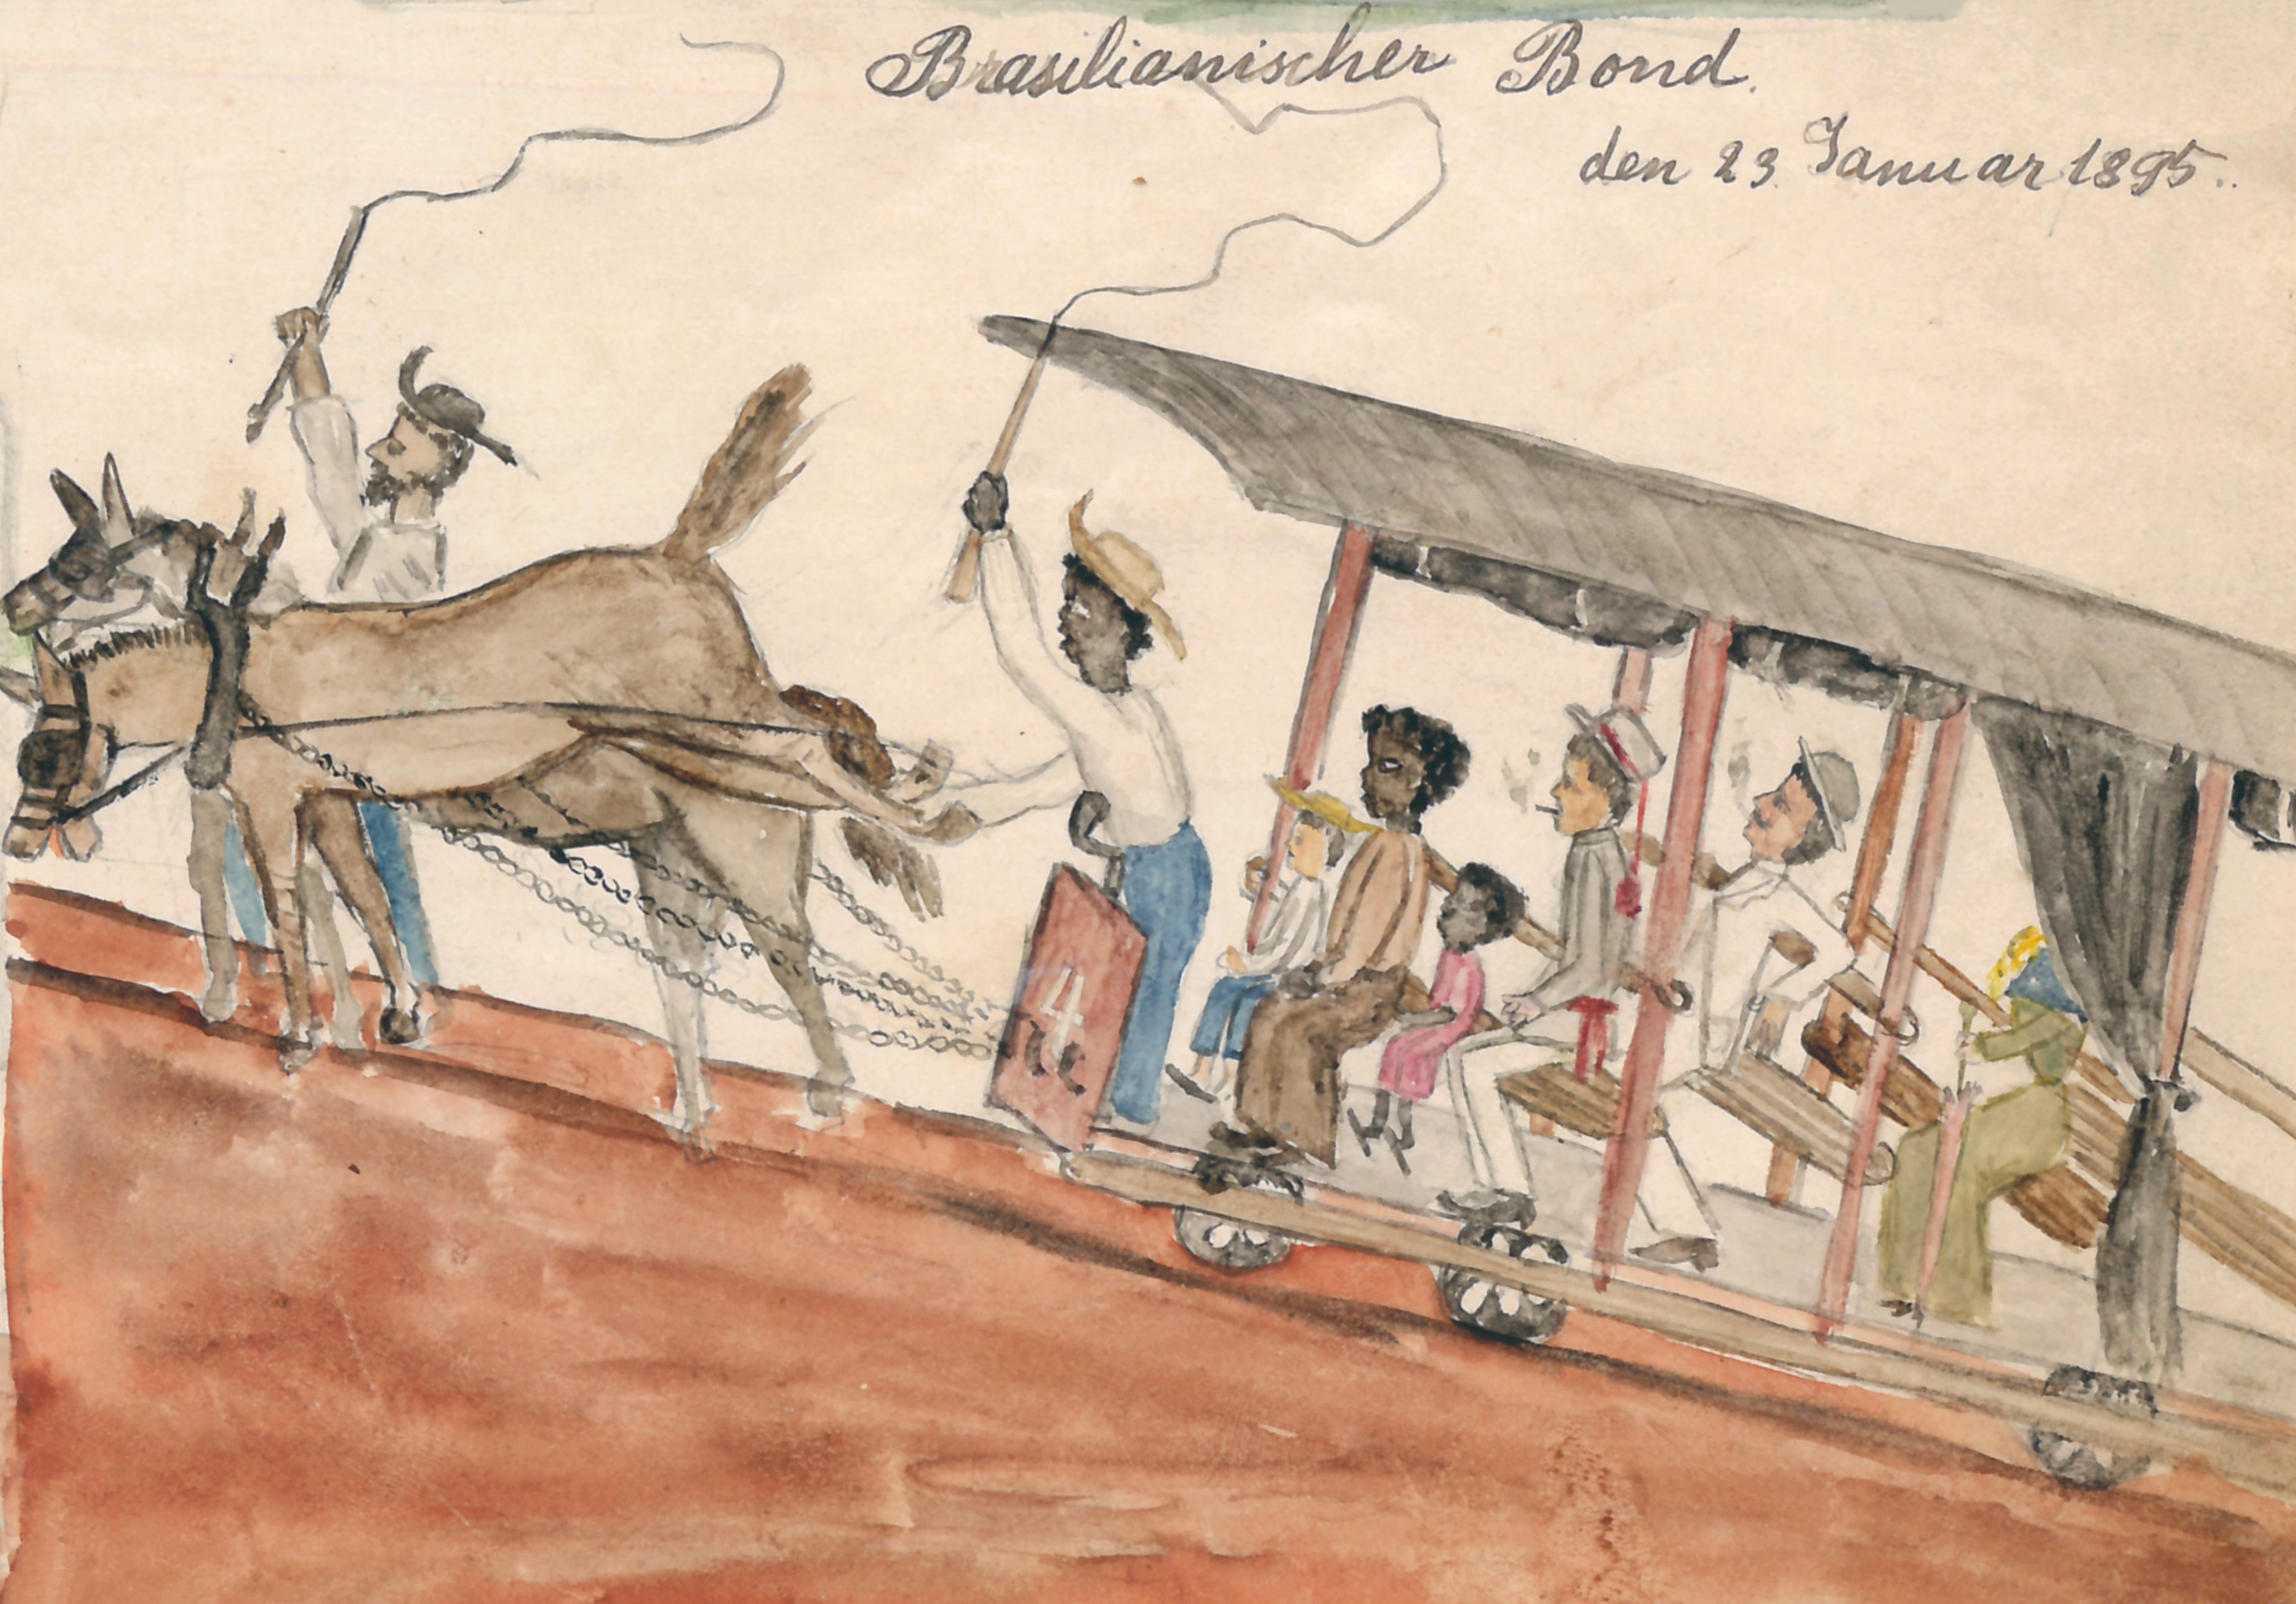 Brasilianischer Bond.
den 23. Januar 1895.
4